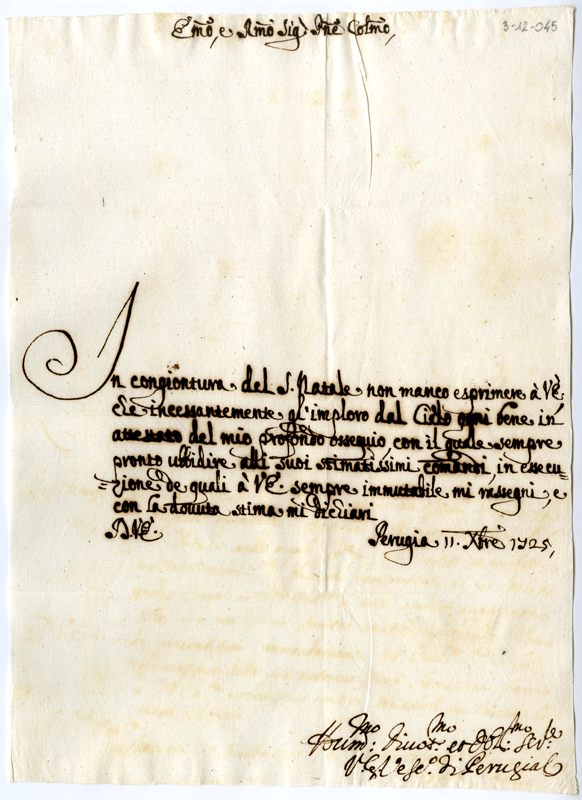 Emõ, e Rmõ Sig.r Pnẽ Colmõ,
3-12-045
In congiontura del S. Natale non manco esprimere à V.E.
che incessantemente gl'imploro dal Cielo ogni bene in
attestato del mio profondo ossequio, con il quale sempre
pronto ubbidire alli suoi stimatissimi comandi, in essecu=
=zione de quali à V.E. sempre immutabile mi rassegni, e
con la dovuta stima mi dichiari
D.V.E.
Perugia 11. Xbre 1725,
Hum:mo Divot:mo et Obl:mo Serv:le
di Perugia